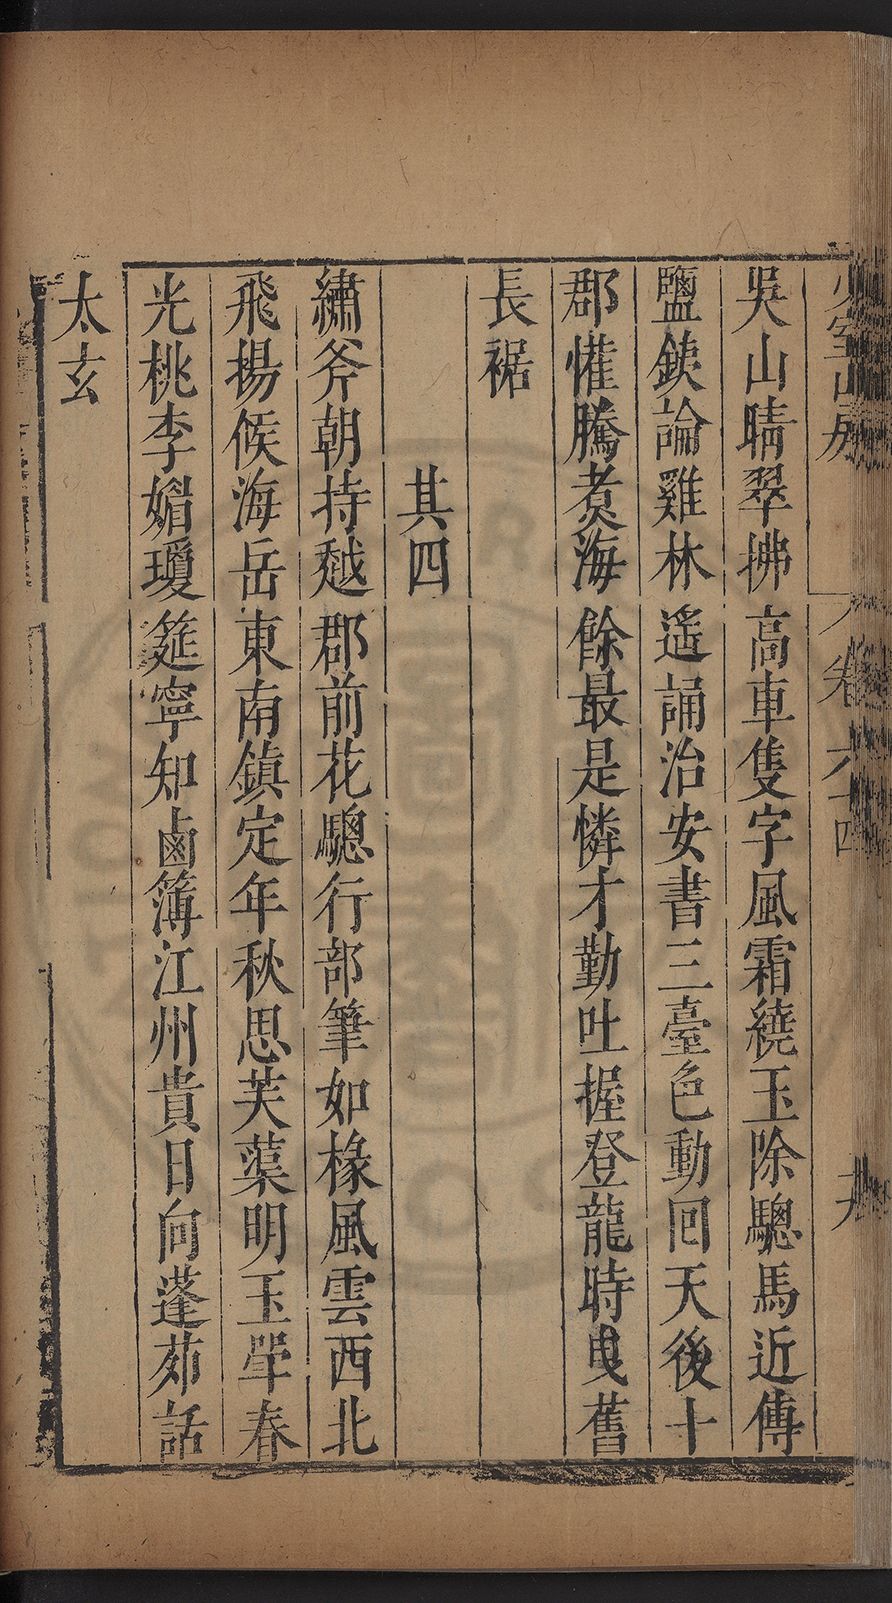 吳山晴翠拂高車隻字風霜繞玉除驄馬近傳
鹽鐵論雞林遙誦治安書三臺色動回天後十
郡懽騰煑海餘最是憐才勤吐握登龍時曳舊
長裾
其四
繡斧朝持越郡前花驄行部筆如椽風雲西北
飛揚候海岳東南鎮定年秋思芙蕖明玉斝春
光桃李媚瓊筵寧知鹵簿江州貴日向蓬茆話
太玄